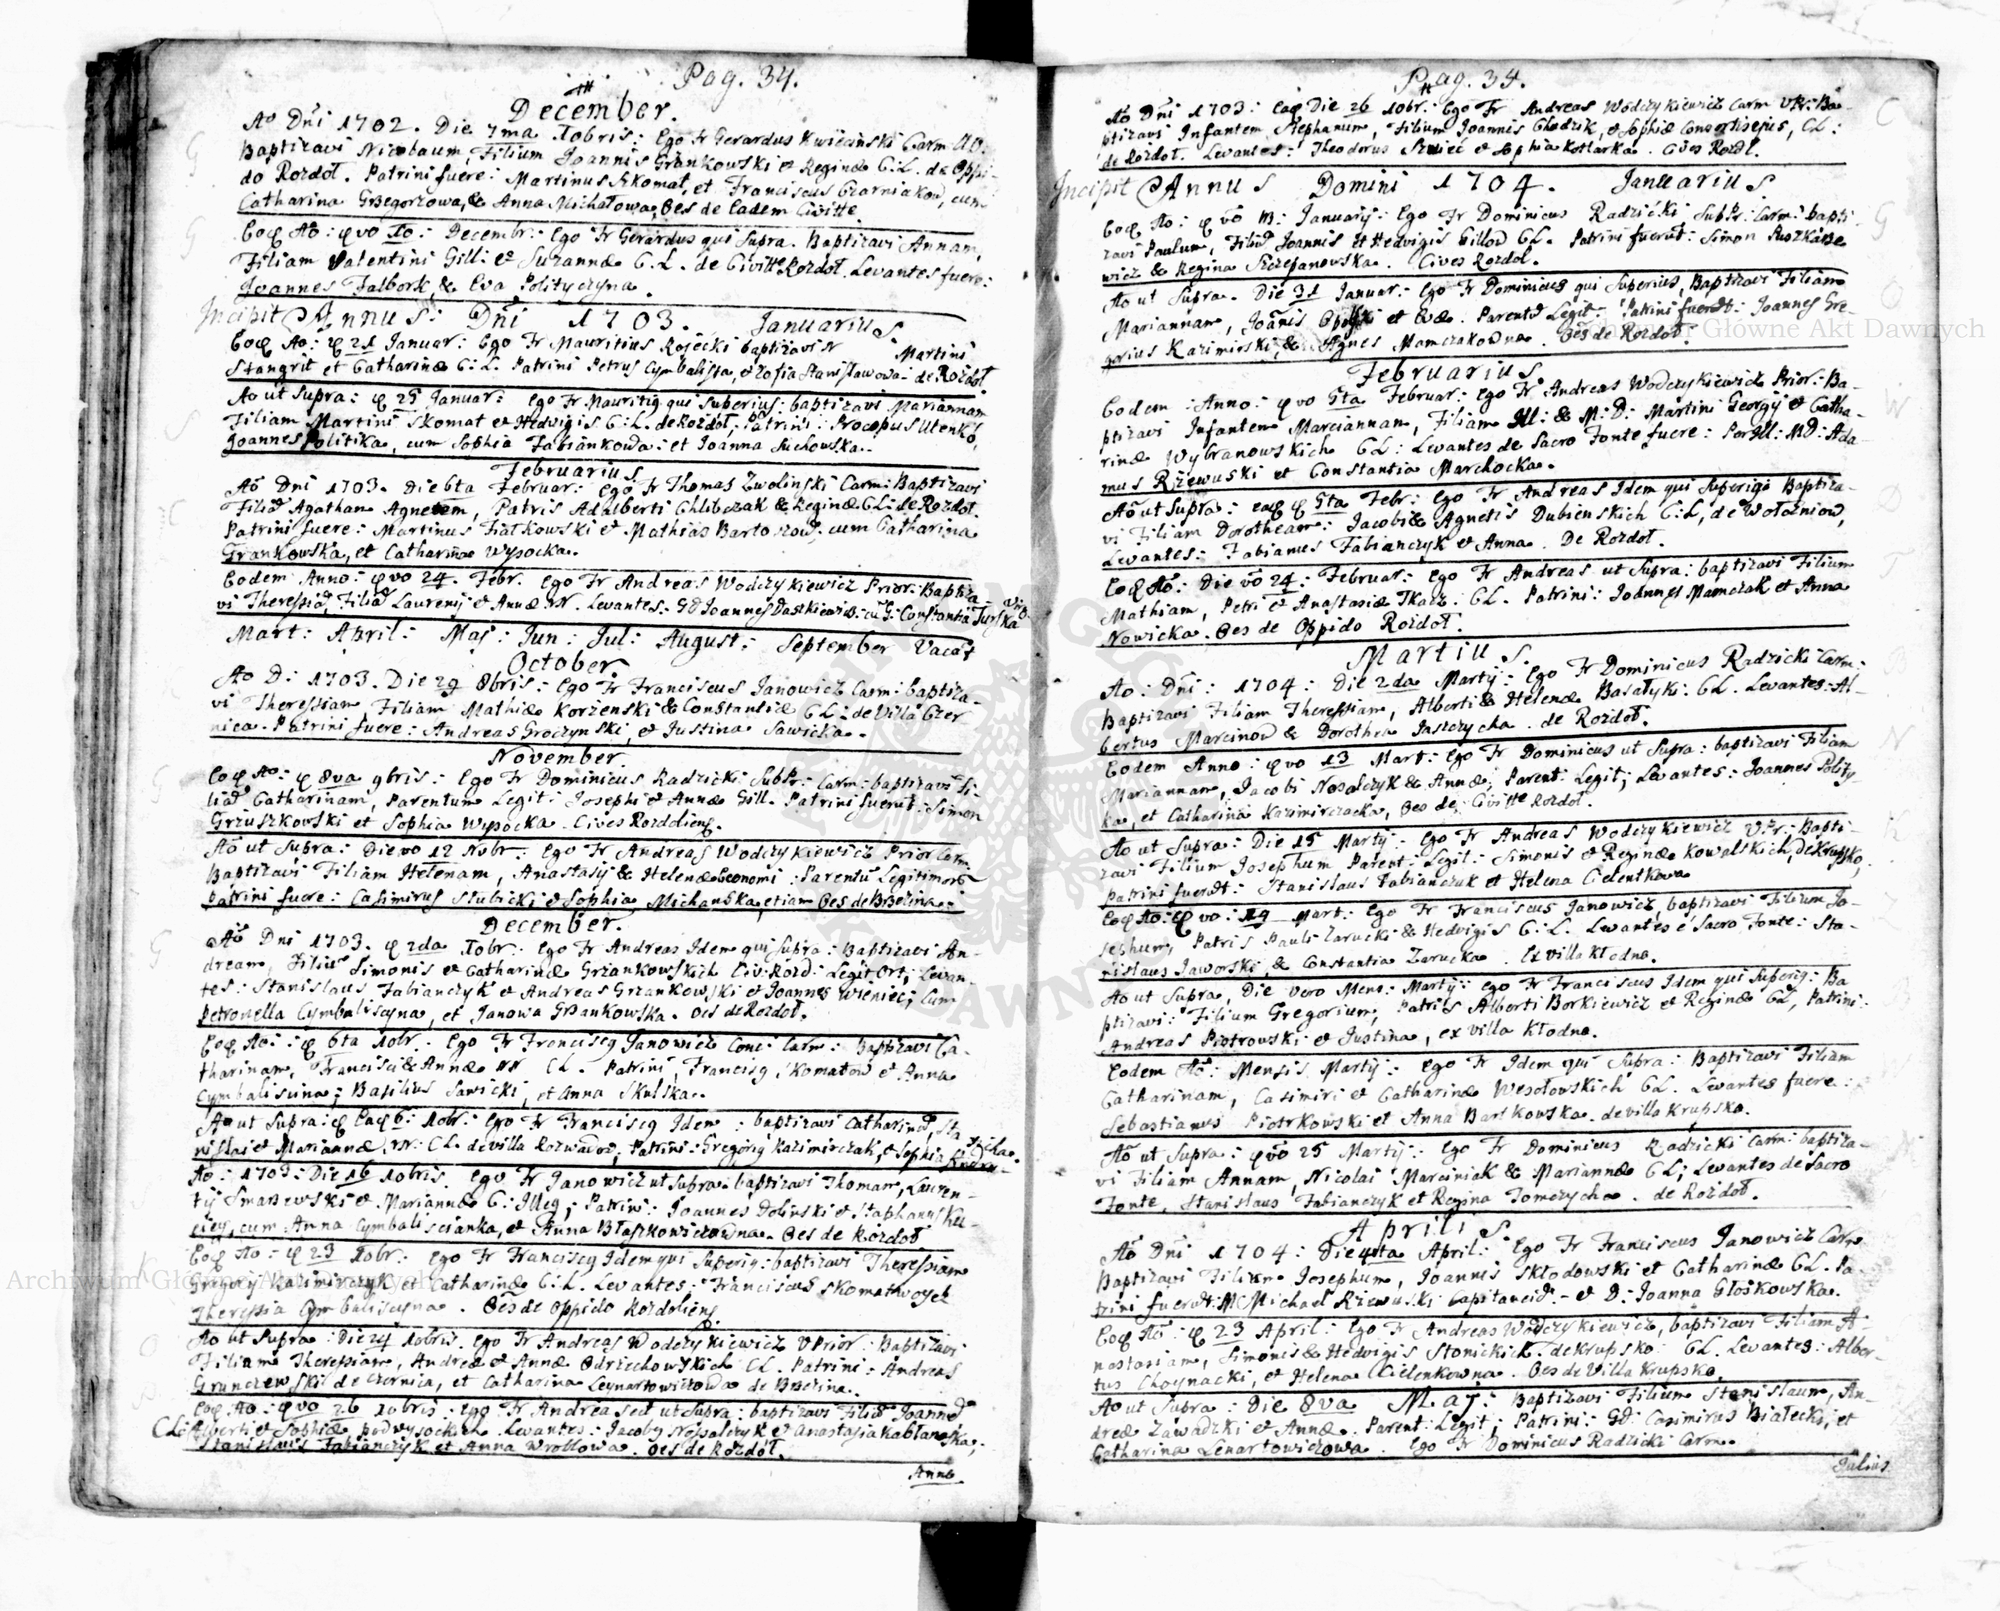 Pag. 34.
December.
Ao Dni 1702. Die 7ma Xobris: Ego Fr Gerardus Kwieciński Carm: AO:
Baptizavi Nicolaum, Filium Joannis Grankowski et Reginæ C:L. de Oppi-
do Rozdoł. Patrini fuere: Martinus Szkomat, et Franciscus Czarniakow, cum
Catharina Grzegorzowa, & Anna Michałowa, Oes de Eadem Civitte.
Eoq Ao: qvo 10: Decembr: Ego Fr Gerardus qui Supra. Baptizavi Annam,
Filiam Valentini Gill: et Suzannæ C.L. de Civitte Rozdoł. Levantes fuere:
Joannes Falbork & Eva Polityczyna.
Incipit Annus: Dni 1703. Januarius
Eoq Ao: q 21 Januar: Ego Fr Mauritius Rojecki baptizavi N Martini
Stangrit et Catharinæ C:L. Patrini Petrus Cymbalista, et Zofia Stanisławowa de Rozdoł
Ao ut Supra: q 25 Januar: Ego Fr Mauritig qui Superius: baptizavi Mariannam
Filiam Martini Skomat et Hedvigis C:L. de Rozdoł; Patrini: Procopus Utenko,
Joannes Politika, cum Sophia Fabiankowa: et Joanna Suchowska.
Februarius
Ao Dni 1703. Die 6ta Februar: Ego Fr Thomas Zwolinski Carm: Baptizavi
Filiã Agatham Agnetem, Patris Adalberti Chlibczak & Reginæ C:L: de Rozdoł.
Patrini fuere: Martinus Fiatkowski et Mathias Bartoszow. cum Catharina
Grankowska, et Catharina Wysocka.
Eodem Anno: qvo 24. Febr. Ego Fr Andreas Wodczykiewicz Prior: Baptiza-
vi Theressiã, Filiã Laurenij et Annæ NN. Levantes: GD Joannes Daszkiewicz: cũ G: Constantia Turska
Mart: April: Maj: Jun: Jul: August: September Vacat
October
Ao D: 1703. Die 29 8bris: Ego Fr Franciscus Janowicz Carm: baptiza-
vi Theressiam Filiam Mathiæ Korzenski & Constantiæ C:L: de Villa Czer
nica. Patrini fuere: Andreas Groczynski, et Justina Sawicka.
November.
Eoq Ao: q 8va 9bris: Ego Fr Dominicus Radzicki SubPr: Carm: baptizavi Fi-
liã Catharinam, Parentum Legit: Josephi et Annæ Gill. Patrini fuerut: Simon
Gruszkowski et Sophia Wysocka. Cives Rozdolieng.
Ao ut Supra: Die vo 12 Nobr: Ego Fr Andreas Wodczykiewicz Prior Carm
Baptizavi Filiam Helenam, Anastasij & Helenæ Economi: Parentũ Legitimorũ
Patrini fuere: Casimirus Stubicki et Sophia Michanska, etiam Oes de Brzezina.
December.
Ao Dni 1703. q 2da Xobr: Ego Fr Andreas Idem qui Supra: Baptizavi An-
dream, Filiũ Simonis et Catharinæ Grzankowskich Civ: Rozd: Legit Ort; Levan-
tes: Stanislaus Fabianczyk et Andreas Grzankowski et Joannes Wieniec; Cum
Petronella Cymbaliscyna, et Janowa Grzankowska. Oes de Rozdoł.
Eoq Ao: q 6ta Xobr: Ego Fr Franciscg Janowicz Conc: Carm: Baptizavi Ca-
tharinam, Francisci & Annæ NN CL. Patrini, Franciscg Skomatow et Anna
Cymbaliscina; Basilius Sawicki, et Anna Skulska.
Ao ut Supra: q Eaq 6: Xobr: Ego Fr Franciscg Idem: baptizavi Catharinã, Sta
nislai et Mariannæ NN. C:L. de villa Rozwadow, Patrini: Gregorig Kazimirczak, et Sophia
Ao: 1703: Die 16 Xobris. Ego Fr Janowicz ut Supra: baptizavi Thomam, Lauren-
tij Smaszewski et Mariannæ C: Illeg; Patrini: Joannes Dolinski et Staphanus Ku-
ciey, cum Anna Cymbaliscianka, et Anna Błaszkowiczowna. Oes de Rozdoł
Eoq Ao: q 23 Xobr: Ego Fr Franciscg Idem qui Superig: baptizavi Theressiam
Gregorij Kazimirczyk et Catharinæ C:L. Levantes: Franciscus Skomathvoyek
Theressia Cymbaliscyna. Oes de Oppido Rozdolieng.
Ao ut Supra: Die 24 Xobris. Ego Fr Andreas Wodczykiewicz VPrior: Baptizavi
Filiam Theressiam, Andreæ et Annæ Odrzechowskich CL. Patrini: Andreas
Grunczewski de Czernica, et Catharina Leynartowiczowa de Brzezina.
Eoq Ao: qvo 26 Xobris: Ego Fr Andreas ut Supra: baptizavi Filiũ Joannẽ
CL: Alberti et Sophiæ podwysockich Levantes: Jacobg Nossalczyk et Anastasia Kablanoska,
Stanislaus Fabianczyk et Anna Wrobłowa. Oes de Rozdoł.
Anno
Pag. 35.
Ao Dni 1703: Eaq Die 26 Xobr: Ego Fr Andreas Wodczykiewicz Carm VPr: Ba-
ptizavi Infantem Stephanum, Filium Joannis Chodzik, et Sophiæ Consortis ejus, CL:
de Rozdoł. Levantes: Theodorus Szwiec et Sophia Kotlarka. Cives Rozdł.
Incipit Annus Domini 1704. Januarius
Eoq Ao: q vo 13: Januarij: Ego Fr Dominicus Radzicki SubPr: Carm: bapti-
zavi Paulum, Filiũ Joannis et Hedvigis Gillow CL. Patrini fuerut: Simon Puszkare
wicz & Regina Szczepanowska. Cives Rozdoł.
Ao ut Supra. Die 31 Januar: Ego Fr Dominicus qui Superius, Baptizavi Filiam
Mariannam, Joãnis Opolski et Evæ. Parentũ Legit: Patrini fuerut: Joannes Gre-
gorius Kazimirski, & Agnes Mamczakowna. Oes de Rozdoł.
Februarius
Eodem Anno: qvo 5ta Februar: Ego Fr Andreas Wodczykiewicz Prior: Ba-
ptizavi Infantem Mariannam, Filiam Ill: & M: D: Martini Georgij et Catha-
rinæ Wybranowskich CL: Levantes de Sacro Fonte fuere: Per Ill: MD: Ada-
mus Rzewuski et Constantia Marchocka.
Ao ut Supra: eaq q 5ta Febr: Ego Fr Andreas Idem qui Superig Baptiza-
vi Filiam Dorotheam: Jacobi & Agnetis Dubienskich C:L, de Wołczniow,
Levantes: Fabianus Fabianczyk et Anna. De Rozdoł.
Eoq Ao: Die vo 24: Februar: Ego Fr Andreas ut Supra: baptizavi Filium
Mathiam, Petri et Anastasiæ Tkacz. CL. Patrini: Joannes Mamczak et Anna
Nowicka. Oes de Oppido Rozdoł.
Martius.
Ao: Dni: 1704: Die 2da Martij: Ego Fr Dominicus Radzicki Carm:
Baptizavi Filiam Theressiam, Alberti & Helenæ Basałyki: CL. Levantes: Al-
bertus Marcinow & Dorothea Jaszczycha. de Rozdoł.
Eodem Anno: qvo 13 Mart: Ego Fr Dominicus ut Supra: baptizavi Filiam
Mariannam, Jacobi Nosalczyk & Annæ, Parent: Legit; Levantes: Joannes Polity-
ka, et Catharina Kazimirczacka, Oes de Civitte Rozdoł.
Ao ut Supra: Die 15 Martij: Ego Fr Andreas Wodczykiewicz VPr: Bapti-
zavi Filium Josephum Parent: Legit: Simonis et Reginæ Kowalskich, de Krupsko,
Patrini fuerut: Stanislaus Fabianczuk et Helena Cielentkowa
Eoq Ao: q vo: 24 Mart: Ego Fr Franciscus Janowicz, baptizavi Filium Jo-
sephum, Patris Pauli Zarucki & Hedvigis C:L. Levantes é Sacro Fonte: Sta-
nislaus Jaworski, & Constantia Zarucka. Ex villa Kłodno.
Ao ut Supra, Die vero Mens: Martij: Ego Fr Franciscus Idem qui Superig: Ba
ptizavi: Filium Gregorium, Patris Alberti Borkiewicz et Reginæ CL, Patrini:
Andreas Piotrowski et Justina, ex villa Kłodno.
Eodem Ao: Mensis Martij: Ego Fr Idem qui Supra: Baptizavi Filiam
Catharinam, Casimiri et Catharinæ Wesołowskich CL. Levantes fuere:
Sebastianus Piotrkowski et Anna Bartkowska. de villa Krupsko.
Ao ut Supra: qvo 25 Martij: Ego Fr Dominicus Radzicki Carm: baptiza-
vi Filiam Annam, Nicolai Marciniak & Mariannæ CL; Levantes de Sacro
Fonte, Stanislaus Fabianczyk et Regina Tomczycha. de Rozdoł.
Aprilis
Ao Dni 1704: Die 4ta April: Ego Fr Franciscus Janowicz Carm
Baptizavi Filium Josephum, Joannis Skłodowski et Catharinæ CL. Pa-
trini fuerut: M Michael Rzewuski Capitaneid. et D: Joanna Głoskowska.
Eoq Ao: q 23 April: Ego Fr Andreas Wodczykiewicz, baptizavi Filiam A-
nastasiam, Simonis & Hedvigis Stonickich. de Krupsko: CL. Levantes: Alber-
tus Choynacki, et Helena Cielenkowna. Oes de Villa Krupsko.
Ao ut Supra: Die 8va Maj: Baptizavi Filium Stanislaum, An-
dreæ Zawadzki et Annæ. Parent: Legit; Patrini: GD: Casimirus Białecki, et
Catharina Lenartowiczowa. Ego Fr Dominicus Radzicki Carm.
Julius
Archiwum Główne Akt Dawnych